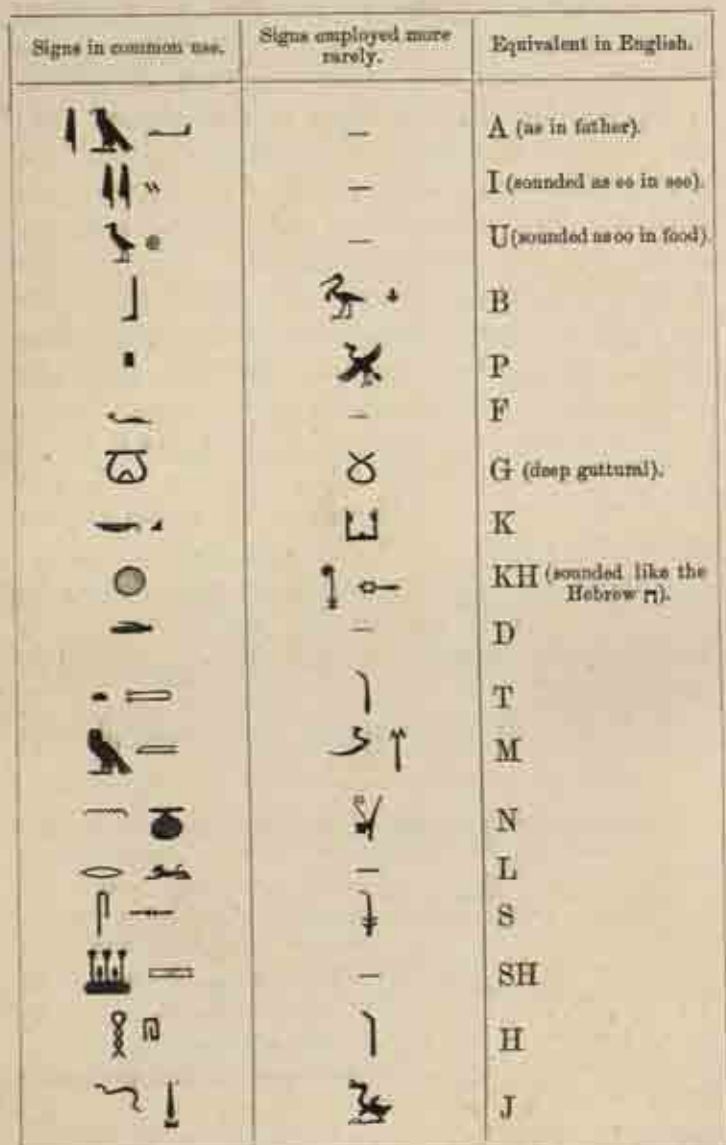 Signs in common use.
Signs employed more rarely.
Equivalent in English.
— A (as in father).
— I (sounded as ee in see).
— U (sounded as oo in food).
B
P
— F
G (deep guttural).
K
KH (sounded like the
Hebrew ח).
— D
T
M
N
— L
S
— SH
H
J